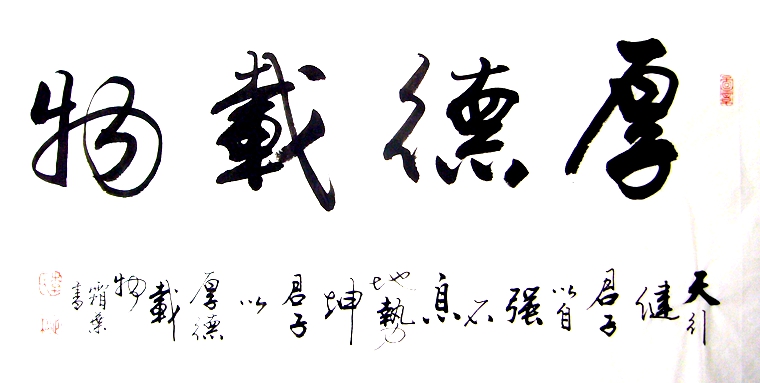 厚德載物
天行健君子以自强不息地勢坤君子以厚德載物
霜葉書